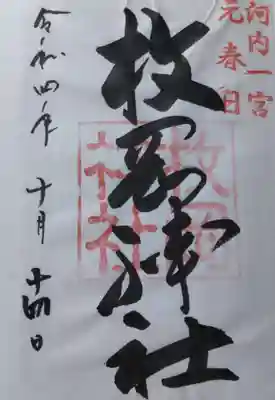 河内一宮
元春日
枚岡神社
枚岡
神社
令和四年十月十四日